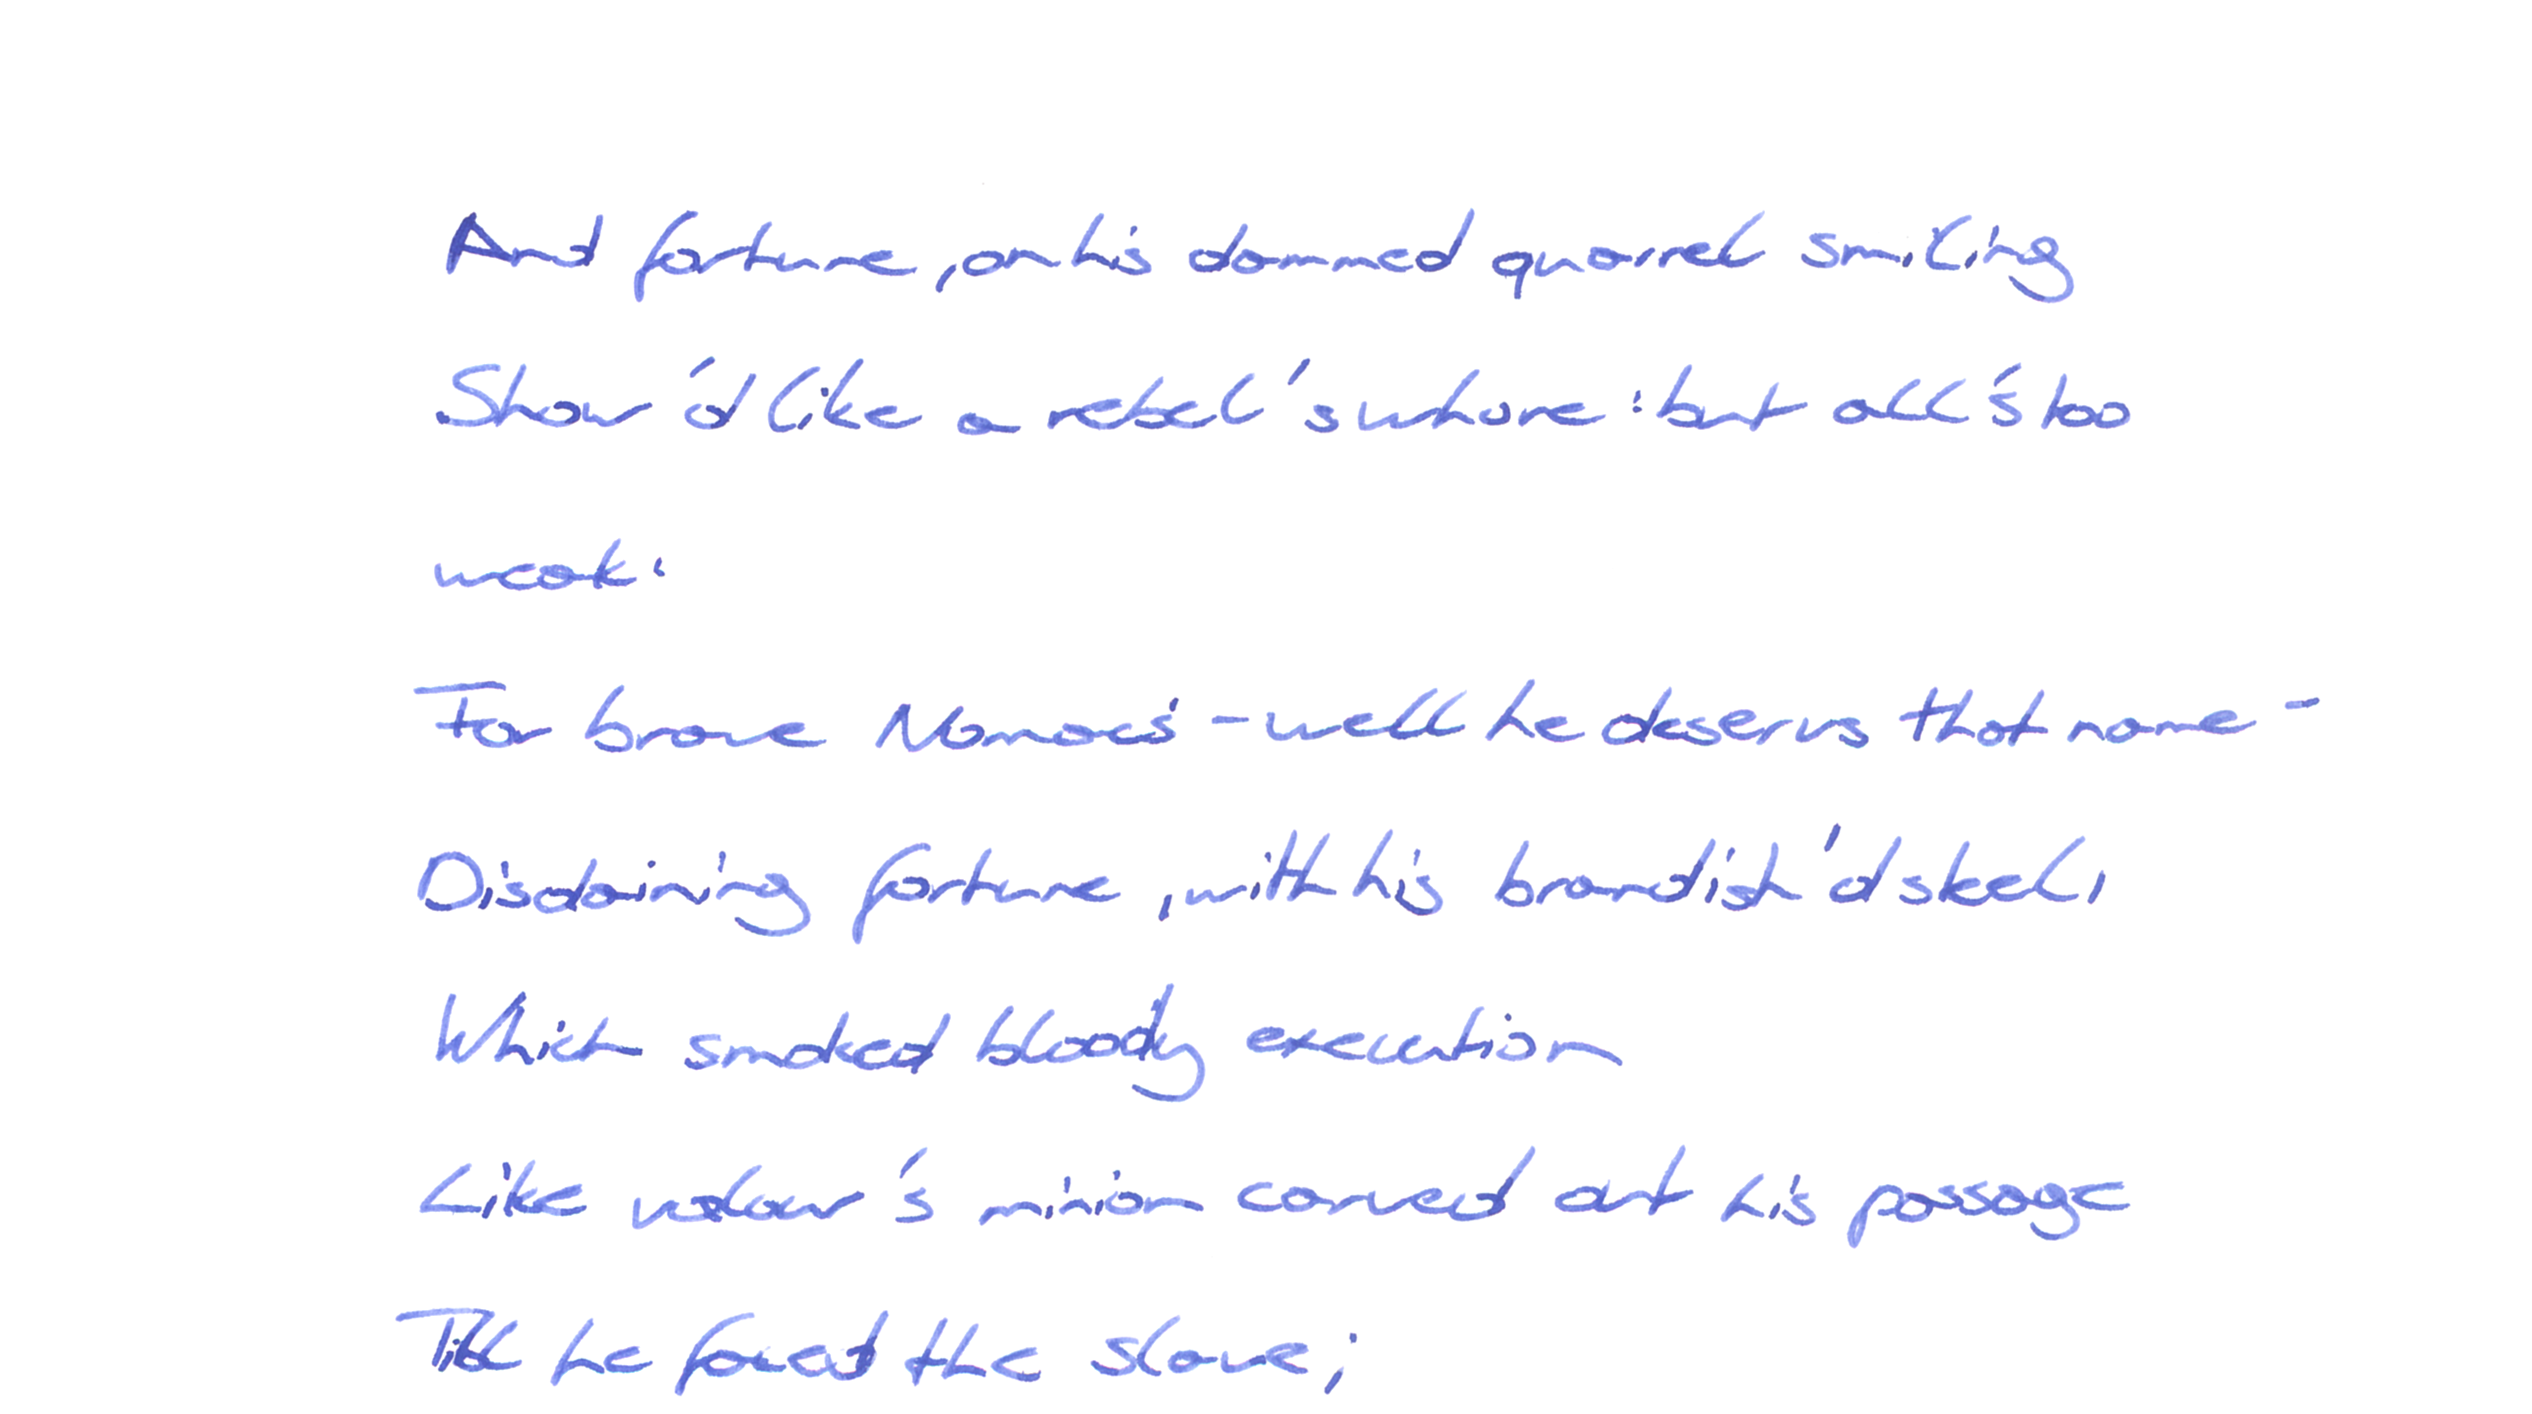 And fortune, on his dammed quarrel smiling
Show'd like a rebel's whore: but all's too
weak:
For brave Nomaes - well he deservs that name -
Disdaining fortune, with his brandish'd steel,
Which smoked bloody execution
Like valour's minion carved out his passage
Till he faced the slave;